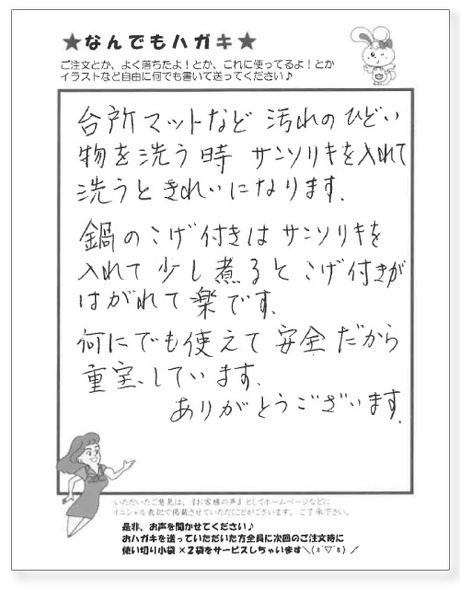 ★なんでもハガキ★
ご注文とか、よく落ちたよ!とか、これに使ってるよ!とか
イラストなど自由に何でも書いて送ってください♪
台所マットなど 汚れのひどい
物を洗う時 サンソリキを入れて
洗うときれいになります.
鍋のこげ付きは サンソリキを
入れて 少し煮ると こげ付きが
はがれて 楽です.
何にでも使えて 安全だから
重宝しています.
ありがとうございます.
いただいたご意見は、『お客様の声』としてホームページなどに
イニシャル表記で掲載させていただくことがございます。ご了承下さい。
是非、お声を聞かせてください♪
おハガキを送っていただいた方全員に次回のご注文時に
使い切り小袋×2袋をサービスしちゃいます＼(*^▽^*)／